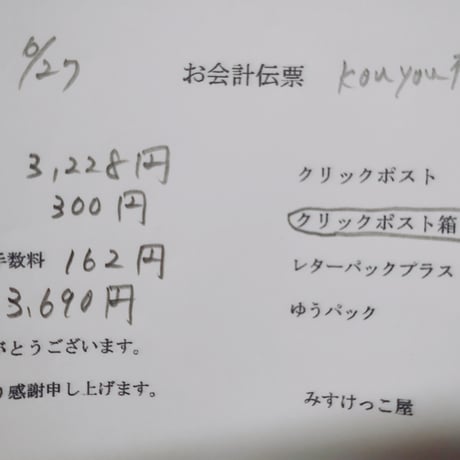 6/27
お会計伝票
kouyou
3,228円
クリックポスト
300円
クリックポスト箱
手数料 162円
レターパックプラス
3,690円
ゆうパック
がとうございます。
感謝申し上げます。
みすけっこ屋